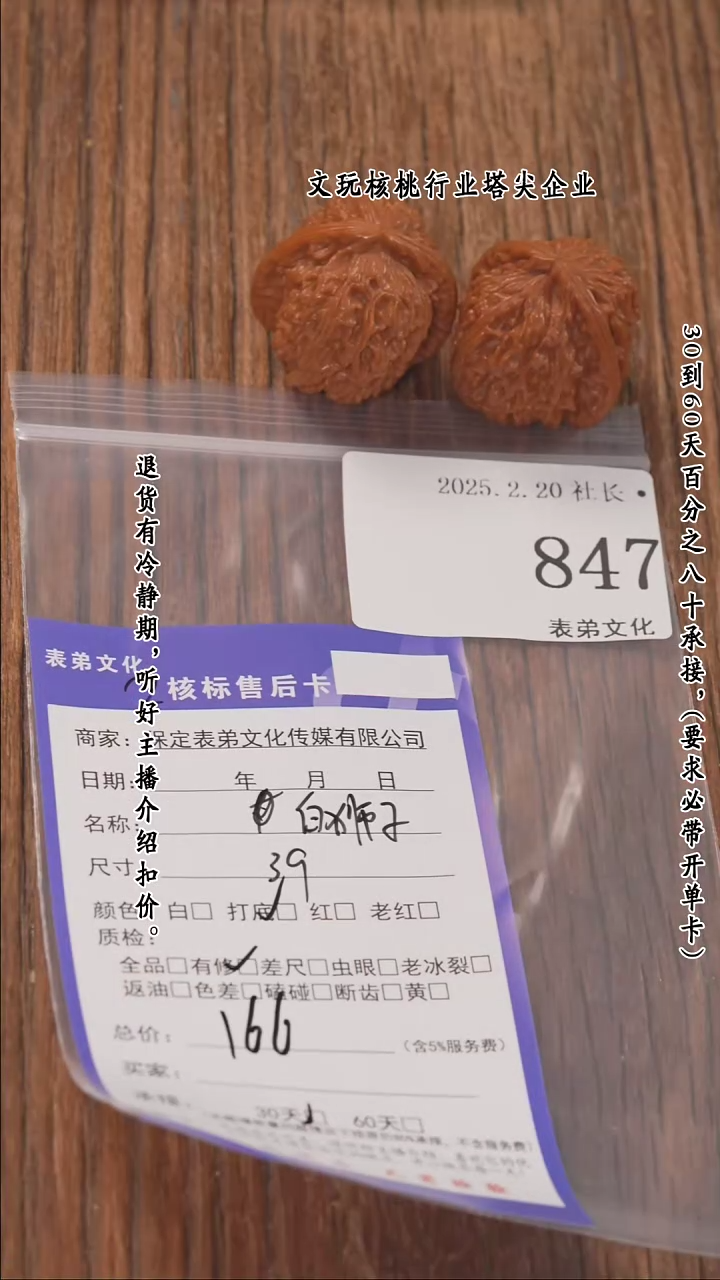 文玩核桃行业塔尖企业
30到60天百分之八十承接，（要求必带开单卡）
退货有冷静期，听好主播介绍扣价。
2025.2.20 社长
847
表弟文化
表弟文化
核标售后卡
商家：保定表弟文化传媒有限公司
日期： 年 月 日
名称： 白狮子
尺寸 39
颜色 白□ 打底□ 红□ 老红□
质检：
全品□有修□差尺□虫眼□老冰裂□
返油□色差□磕碰□断齿□黄□
总价： 166 （含5%服务费）
买家：
30天□ 60天□